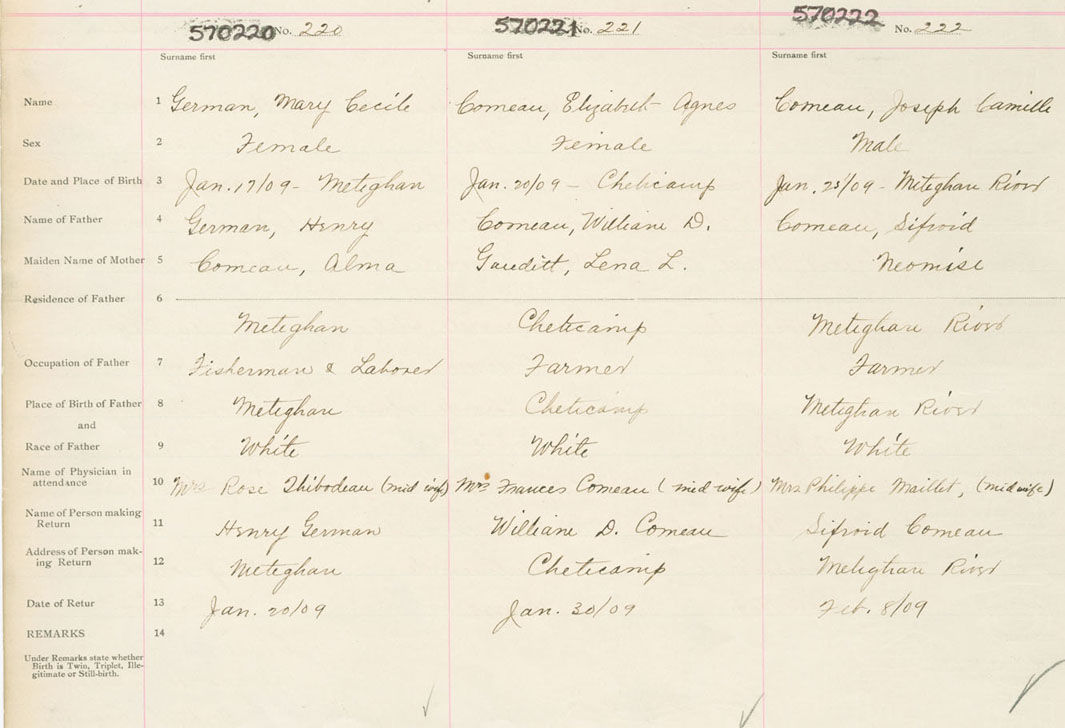 570220 No. 220 570221 No. 221 570222 No. 222
Surname first Surname first Surname first
Name 1 German, Mary Cecile Comeau, Elizabeth Agnes Comeau, Joseph Camille
Sex 2 Female Female Male
Date and Place of Birth 3 Jan. 17/09 - Meteghan Jan. 20/09 - Cheticamp Jan. 25/09 - Meteghan River
Name of Father 4 German, Henry Comeau, William D. Comeau, Sifroid
Maiden Name of Mother 5 Comeau, Alma Gauditt, Lena L. Neomise
Residence of Father 6
Meteghan Cheticamp Meteghan River
Occupation of Father 7 Fisherman & Laborer Farmer Farmer
Place of Birth of Father 8 Meteghan Cheticamp Meteghan River
and
Race of Father 9 White White White
Name of Physician in
attendance 10 Mrs Rose Thibodeau (mid wife) Mrs Frances Comeau (mid wife) Mrs Philippe Maillet, (midwife)
Name of Person making
Return 11 Henry German William D. Comeau Sifroid Comeau
Address of Person mak-
ing Return 12 Meteghan Cheticamp Meteghan River
Date of Retur 13 Jan. 20/09 Jan. 30/09 Feb. 8/09
REMARKS 14
Under Remarks state whether
Birth is Twin, Triplet, Ille-
gitimate or Still-birth.